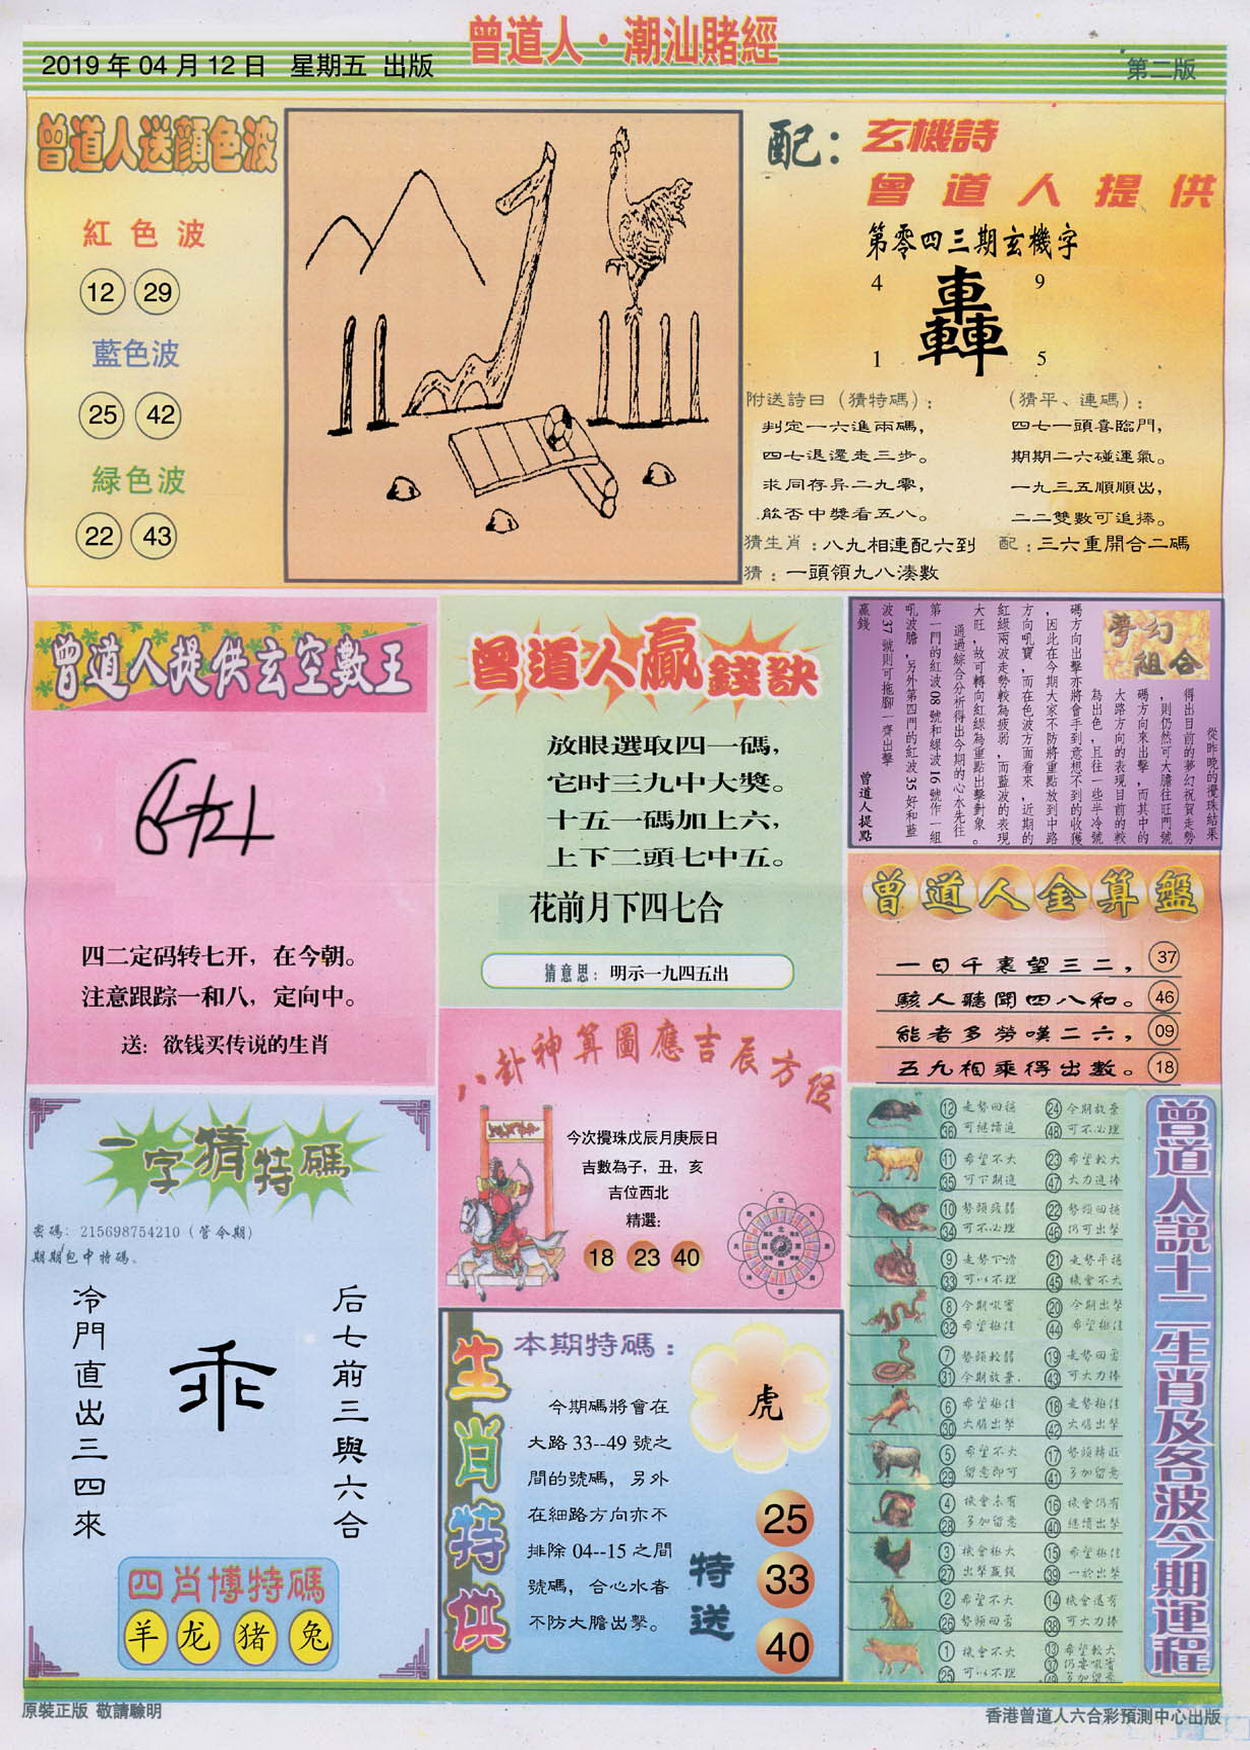 曾道人·潮汕賭經
2019年04月12日 星期五 出版
第二版
曾道人送顔色波
紅色波
12 29
藍色波
25 42
緑色波
22 43
配：玄機詩
曾道人提供
第零四三期玄機字
4 9
轟
1 5
附送詩曰（猜特碼）：
判定一六進兩碼，
四七退還走三步。
求同存异二九零，
能否中獎看五八。
（猜平、連碼）：
四七一頭喜臨門，
期期二六碰運氣。
一九三五順順出，
二二雙數可追捧。
猜生肖：八九相連配六到
配：三六重開合二碼
猜：一頭領九八湊數
曾道人提供玄空數王
四二定码转七开，在今朝。
注意跟踪一和八，定向中。
送：欲钱买传说的生肖
曾道人贏錢訣
放眼選取四一碼，
它时三九中大獎。
十五一碼加上六，
上下二頭七中五。
花前月下四七合
猜意思：明示一九四五出
夢幻組合
從昨晚的攪珠結果
得出目前的夢幻祝賀走勢
，則仍然可大膽往旺門號
碼方向來出擊，而其中的
大路方向的表現目前的較
為出色，且往一些半冷號
碼方向出擊亦將會手到意想不到的收獲
，因此在今期大家不防將重點放到中路
方向吼寶，而在色波方面看來，近期的
紅緑兩波走勢較為疲弱，而藍波的表現
大旺，故可轉向紅緑為重點出擊對象。
通過綜合分析得出今期的心水先往
第一門的紅波08號和緑波16號作一組
吼波膽，另外第四門的紅波35好和藍
波37號則可拖腳一齊出擊
贏錢
曾道人提點
曾道人金算盤
一日千裏望三二， 37
駭人聽聞四八和。 46
能者多勞嘆二六， 09
五九相乘得出數。 18
八卦神算圖應吉辰方位
今次攪珠戊辰月庚辰日
吉數為子，丑，亥
吉位西北
精選：
18 23 40
一字猜特碼
密碼：215698754210（管令期）
期期包中特碼。
后七前三與六合
乖
冷門直出三四來
四肖博特碼
羊 龙 猪 兔
生肖特供
本期特碼：
虎
今期碼將會在
大路33--49號之
間的號碼，另外
在細路方向亦不
排除04--15之間
號碼，合心水者
不防大膽出擊。
特送
25
33
40
曾道人説十二生肖及各波今期運程
12 走勢回穩 24 今期放棄
36 可繼續追 48 可不必理
11 希望不大 23 希望較大
35 可下期追 47 大力追捧
10 勢頭疲弱 22 勢頭回穩
34 可不必理 46 仍可出擊
9 走勢下滑 21 走勢平穩
33 可以不理 45 機會不大
8 今期吼寶 20 今期出擊
32 希望極佳 44 希望極佳
7 勢頭較弱 19 走勢回勇
31 今期放棄. 43 可大力捧
6 希望極佳 18 走勢極佳
30 大膽出擊 42 大膽出擊
5 希望不大 17 勢頭轉旺
29 留意即可 41 多加留意
4 機會未有 16 機會仍有
28 多加留意 40 繼續出擊
3 機會極大 15 希望極佳
27 出擊贏錢 39 一於出擊
2 希望不大 14 機會還有
26 勢頭回勇 38 可大力捧
1 機會不大 13 希望較大
25 可以不理 37 仍要吼實
49 多加留意
原裝正版 敬請驗明
香港曾道人六合彩預測中心出版